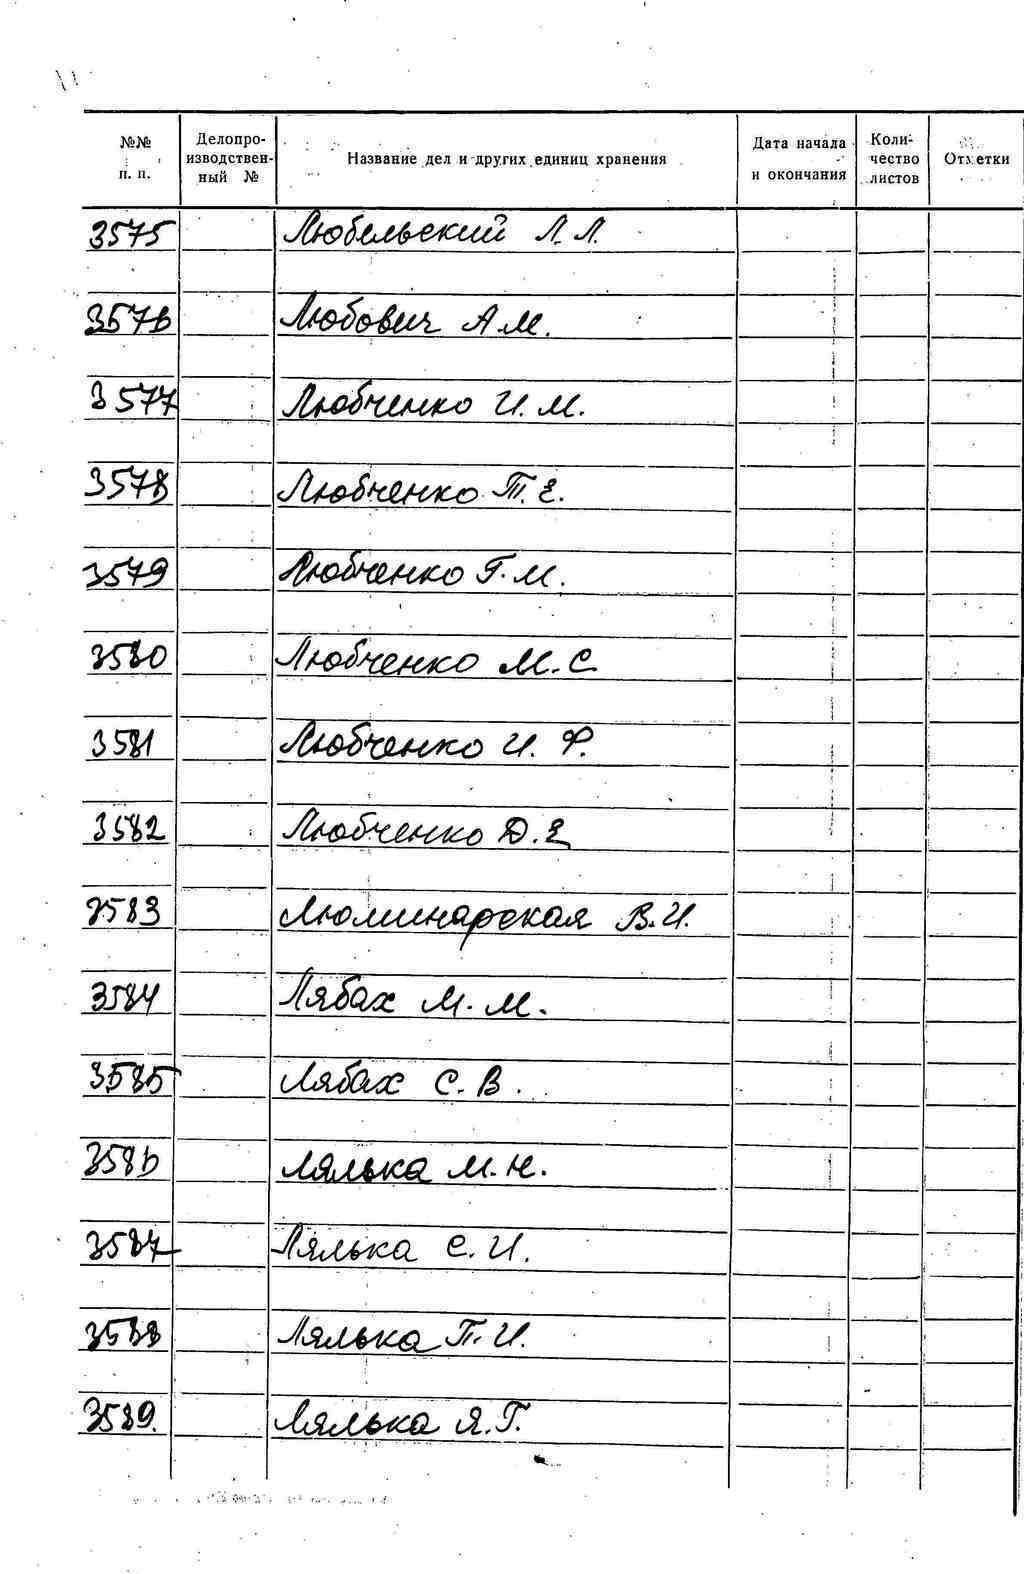 №№ п. п. Делопроизводственный № Название дел и других единиц хранения Дата начала и окончания Количество листов Отметки
3575 Любельский Л. Л.
3576 Любович А. М.
3577 Любченко И. М.
3578 Любченко Т. Е.
3579 Любченко Г. М.
3580 Любченко М. С.
3581 Любченко И. Ф.
3582 Любченко Д. Е.
3583 Люминарская В. И.
3584 Лябах М. М.
3585 Лябах С. В.
3586 Лялька М. Н.
3587 Лялька С. И.
3588 Лялька П. И.
3589. Лялька Я. Г.